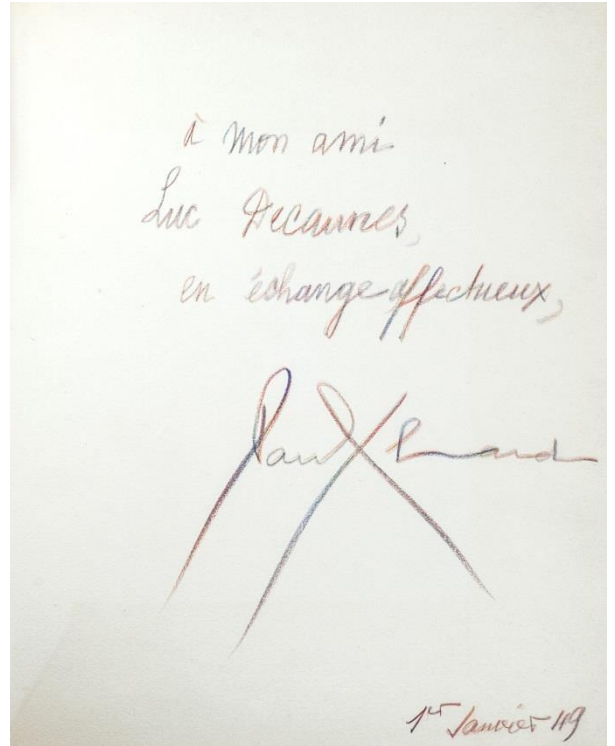 à mon ami
Luc Decaunes,
en échange affectueux,
Paul
1er Janvier 49